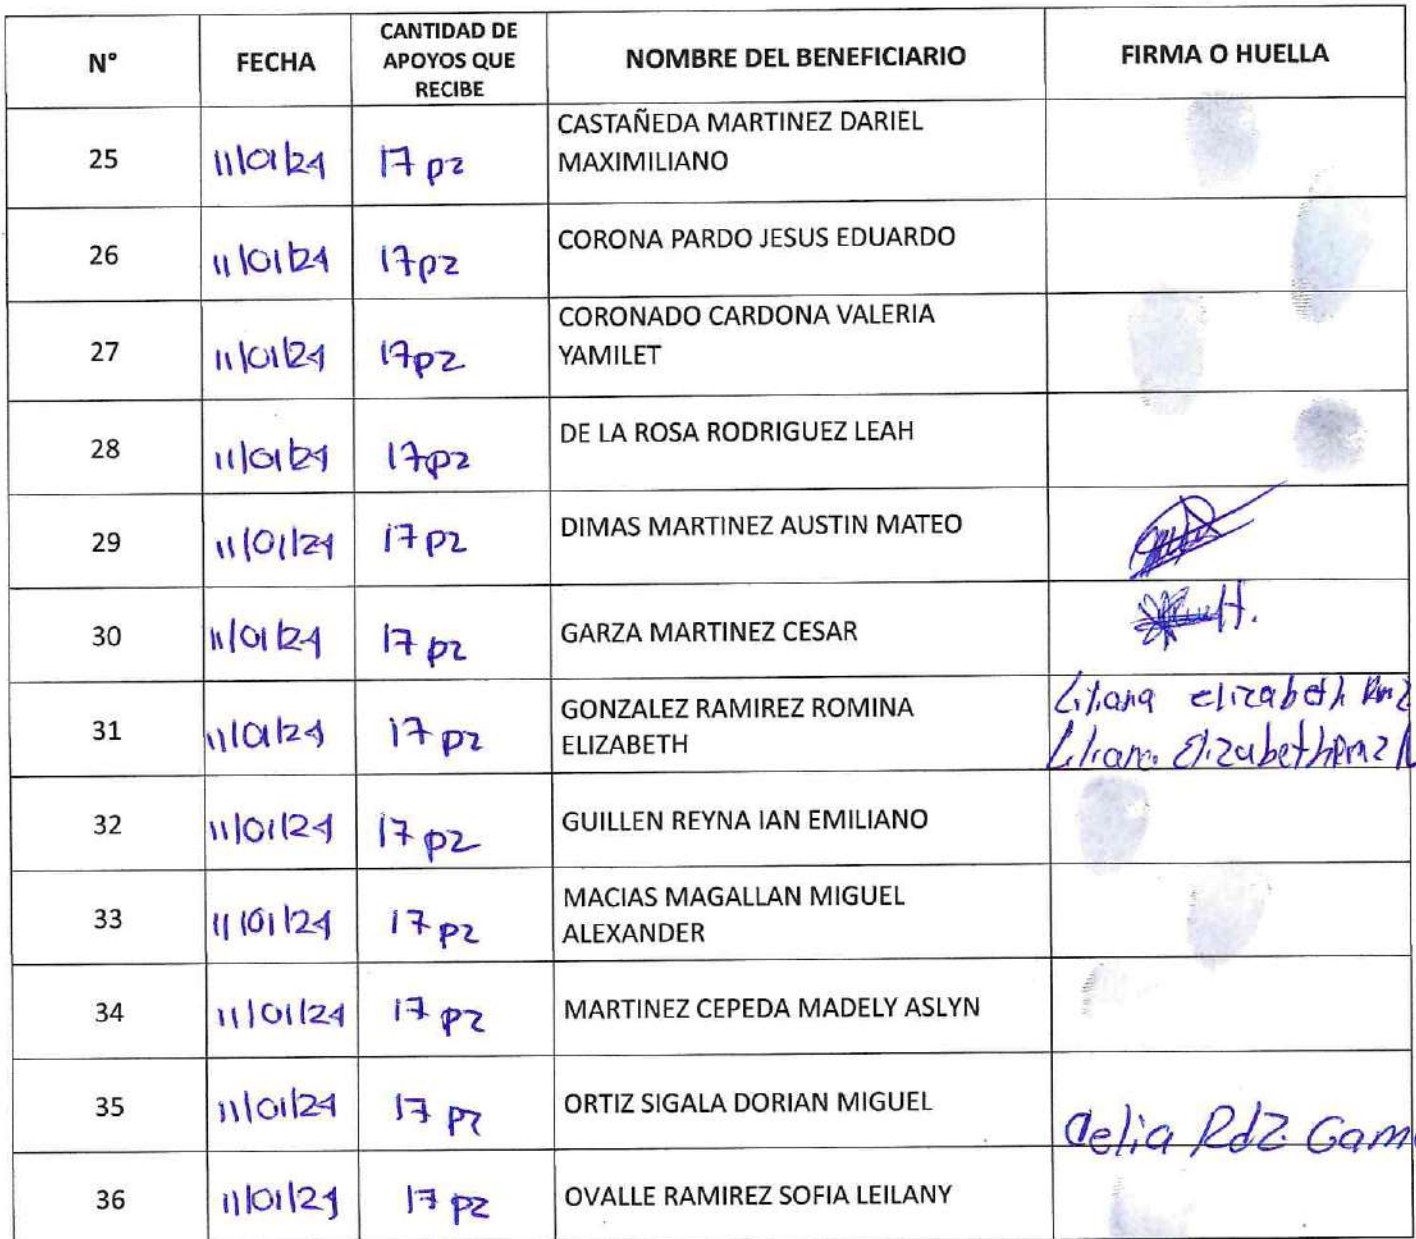 N° FECHA CANTIDAD DE APOYOS QUE RECIBE NOMBRE DEL BENEFICIARIO FIRMA O HUELLA
25 11/01/24 17 pz CASTAÑEDA MARTINEZ DARIEL
MAXIMILIANO
26 11/01/24 17pz CORONA PARDO JESUS EDUARDO
27 11/01/24 17pz CORONADO CARDONA VALERIA
YAMILET
28 11/01/24 17pz DE LA ROSA RODRIGUEZ LEAH
29 11/01/24 17 pz DIMAS MARTINEZ AUSTIN MATEO
30 11/01/24 17 pz GARZA MARTINEZ CESAR
31 11/01/24 17 pz GONZALEZ RAMIREZ ROMINA Liliana elizabeth Rmz
ELIZABETH Liliana Elizabeth Rmz
32 11/01/24 17 pz GUILLEN REYNA IAN EMILIANO
33 11/01/24 17 pz MACIAS MAGALLAN MIGUEL
ALEXANDER
34 11/01/24 17 pz MARTINEZ CEPEDA MADELY ASLYN
35 11/01/24 17 pz ORTIZ SIGALA DORIAN MIGUEL Celia Rdz Gam
36 11/01/24 17 pz OVALLE RAMIREZ SOFIA LEILANY